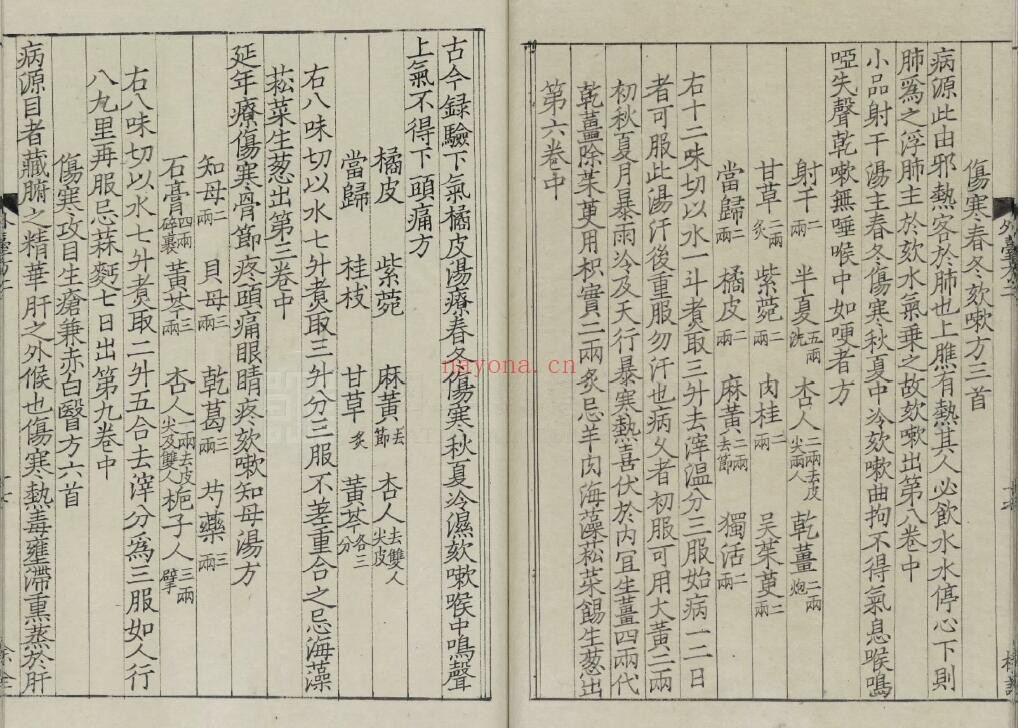 傷寒春冬欬嗽方三首
病源此由邪熱客於肺也上膲有熱其人必飲水水停心下則
肺爲之浮肺主於欬水氣乗之故欬嗽出第八卷中
小品射干湯主春冬傷寒秋夏中冷欬嗽曲拘不得氣息喉鳴
啞失聲乾嗽無唾喉中如哽者方
射干二兩 半夏五兩洗 杏人二兩去皮尖兩人 乾薑二兩炮
甘草二兩炙 紫菀二兩 肉桂二兩 吴茱萸二兩
當歸二兩 橘皮二兩 麻黃二兩去節 獨活二兩
右十二味切以水一斗煮取三升去滓温分三服始病一二日
者可服此湯汗後重服勿汗也病久者初服可用大黃二兩
初秋夏月暴雨冷及天行暴寒熱喜伏於内宜生薑四兩代
乾薑除茱萸用枳實二兩炙忌羊肉海藻菘菜餳生葱出
第六卷中
古今録驗下氣橘皮湯療春冬傷寒秋夏冷濕欬嗽喉中鳴聲
上氣不得下頭痛方
橘皮 紫菀 麻黃去節 杏人去雙人尖皮
當歸 桂枝 甘草炙 黃芩各三分
右八味切以水七升煮取三升分三服不差重合之忌海藻
菘菜生葱出第三卷中
延年療傷寒骨節疼頭痛眼睛疼欬嗽知母湯方
知母二兩 貝母三兩 乾葛三兩 芍藥三兩
石膏四兩碎裹 黃芩三兩 杏人一兩去皮尖及雙人 梔子人三兩擘
右八味切以水七升煮取二升五合去滓分爲三服如人行
八九里再服忌蒜麪七日出第九卷中
傷寒攻目生瘡兼赤白瞖方六首
病源目者藏腑之精華肝之外候也傷寒熱毒壅滯熏蒸於肝
nayona.cn